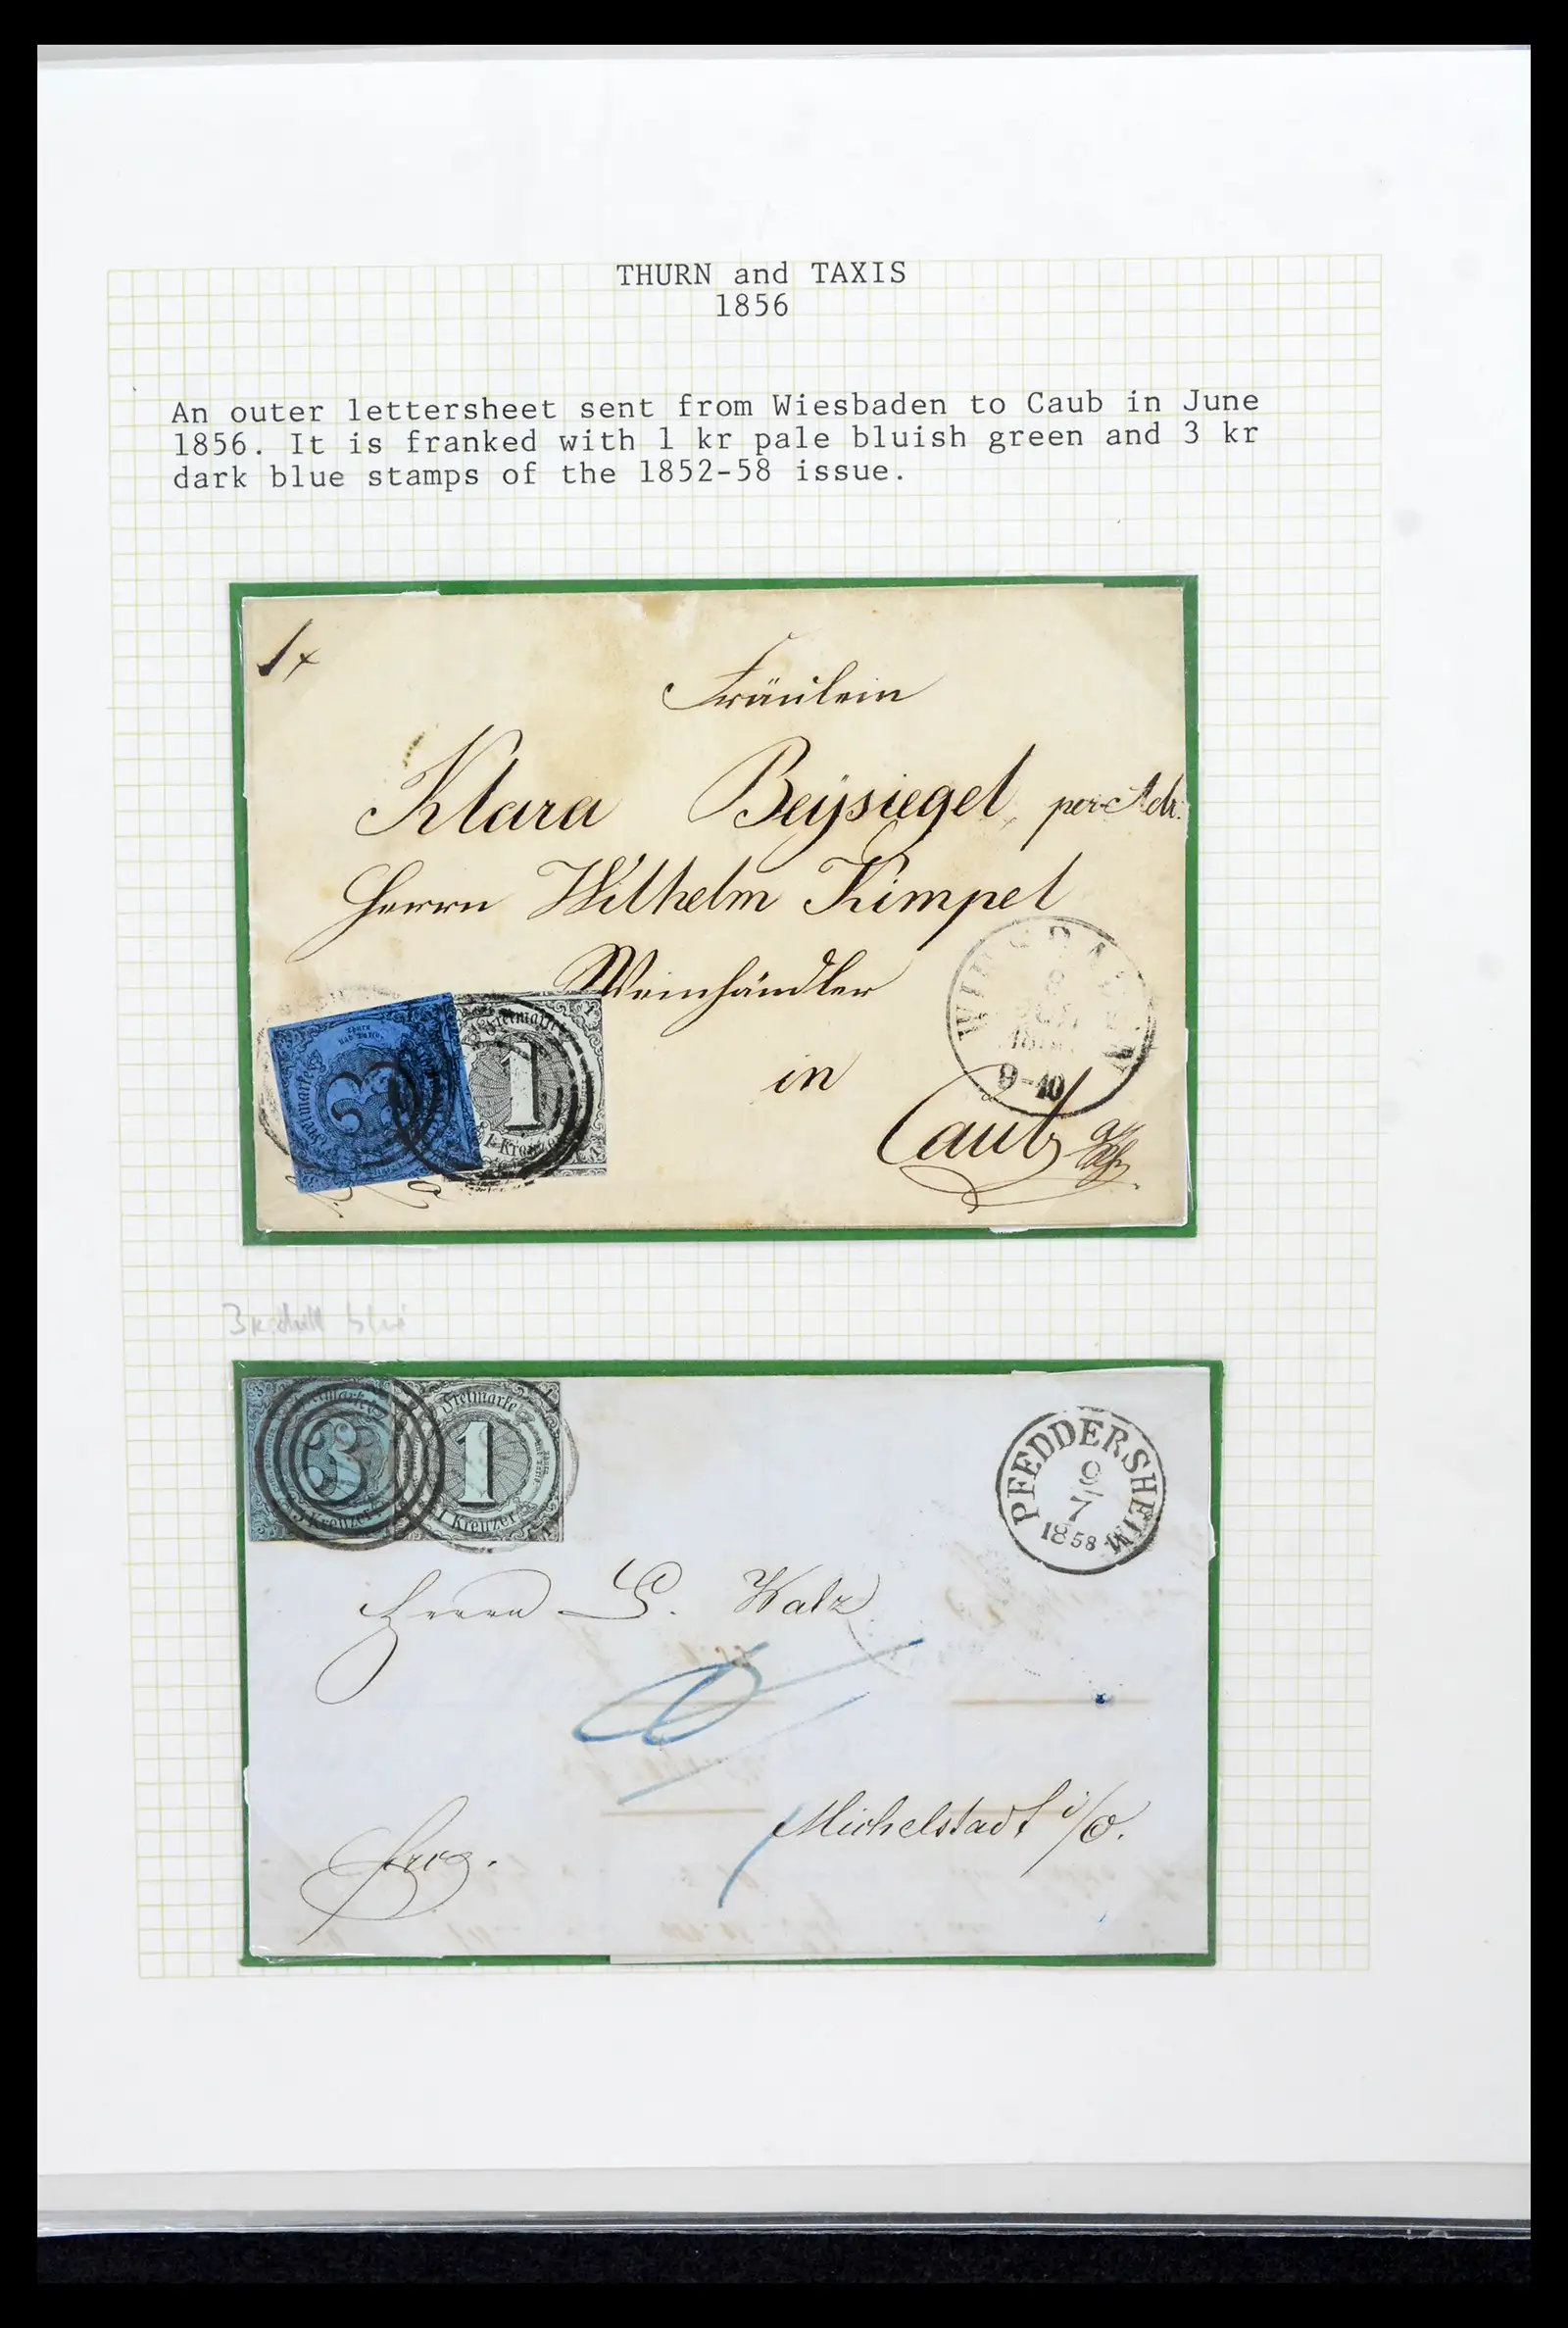 THURN and TAXIS
1856
An outer lettersheet sent from Wiesbaden to Caub in June
1856. It is franked with 1 kr pale bluish green and 3 kr
dark blue stamps of the 1852-58 issue.
1x
Fräulein
Klara Beÿsiegel, per Adr.
Herrn Wilhelm Kimpel
Weinhändler
in
Caub
9-10
Freimarke
3
Freimarke
1
1. Kreuzer
3k blue
3
3 Kreuzer
Freimarke
1
1 Kreuzer
PFEDDERSHEIM
9/7
1858
Herrn G. Walz
Michelstadt i/O.